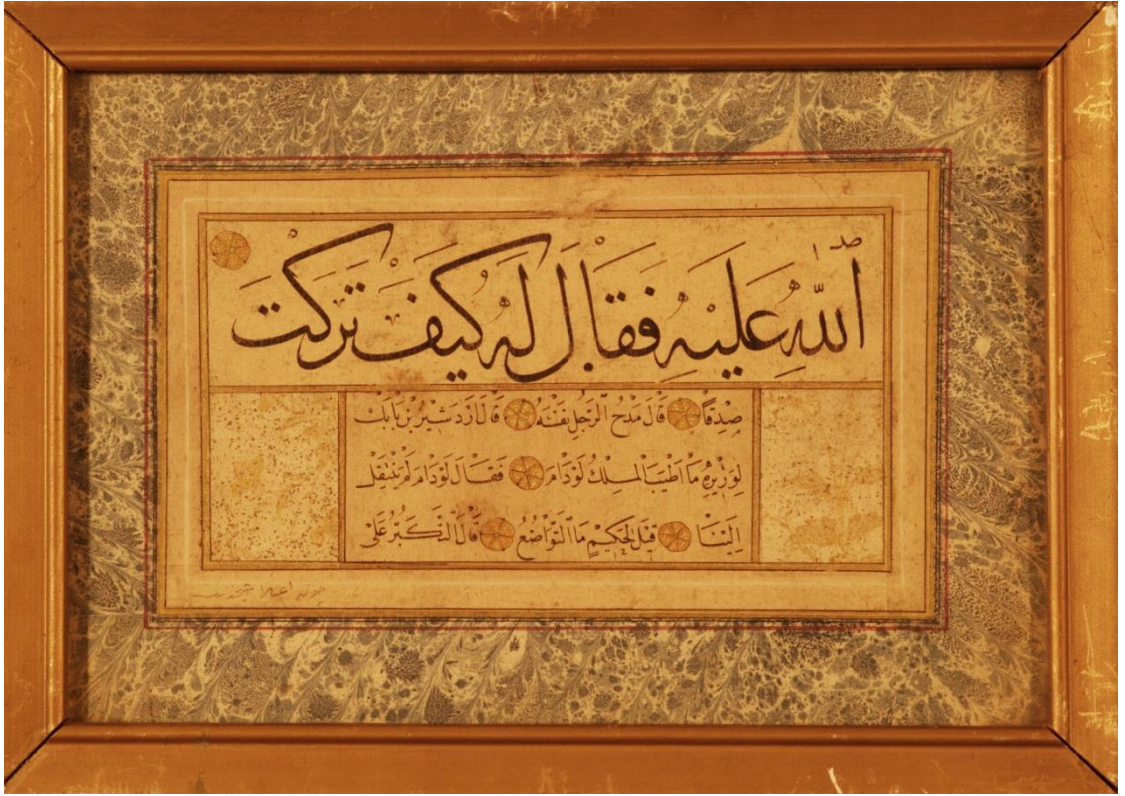 اللهِ عَلَيْهِ فَقَالَ لَهُ كَيْفَ تَرَكْتَ
صِدْقًا قَالَ مَدْحُ الرَّجُلِ نَفْسَهُ قَالَ اَرْدَشِيرُ بْنُ بَابَكَ
لِوَزِيرِهِ مَا اَطْيَبَ الْمُلْكُ لَوْ دَامَ فَقَالَ لَوْ دَامَ لَمْ يَنْتَقِلْ
اِلَيْنَا قِيلَ لِحَكِيمٍ مَا التَّوَاضُعُ قَالَ التَّكَبُّرُ عَلَى